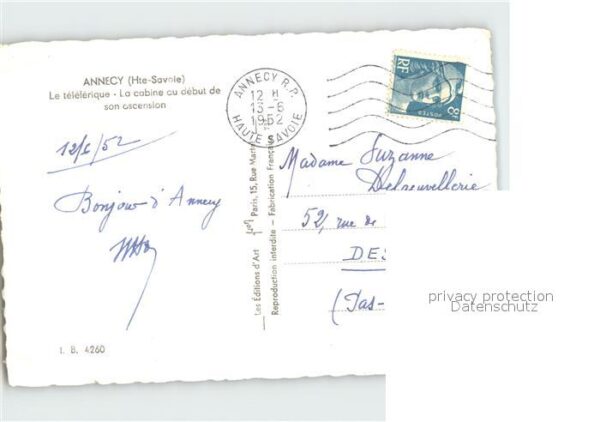 ANNECY (Hte-Savoie)
Le téléférique - La cabine au début de
son ascension
12/6/52
Bonjour d'Annecy
I. B. 4260
Les Editions d'Art Yvon Paris, 15, Rue Mart
Reproduction interdite - Fabrication Française
ANNECY R.P.
12 H
13-6
1952
HAUTE SAVOIE
RF
8F
POSTES
Madame Suzanne
Delneuvellerie
52, rue de
DES
(Pas-
privacy protection
Datenschutz